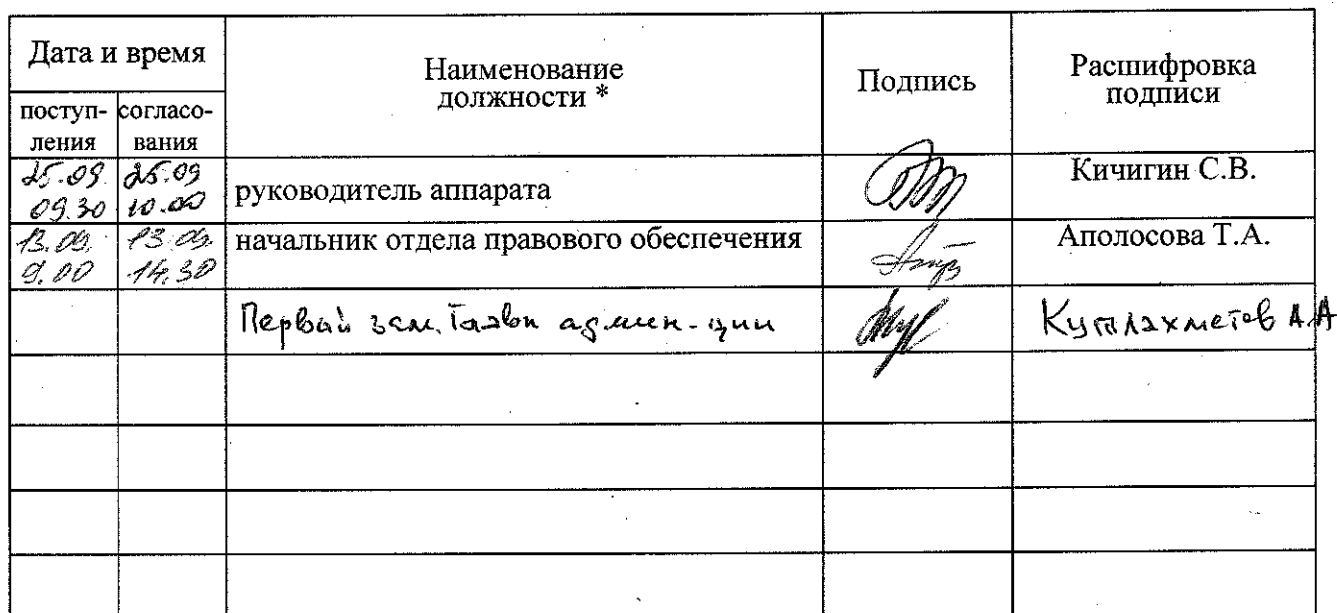 Дата и время
Наименование должности *
Подпись
Расшифровка подписи
поступ-ления
согласо-вания
25.09. 25.09 руководитель аппарата Кичигин С.В.
09.30 10.00
13.09. 13.09. начальник отдела правового обеспечения Аполосова Т.А.
9.00 14.30
Первый зам. Главы админ-ции Кутлахметов А.А